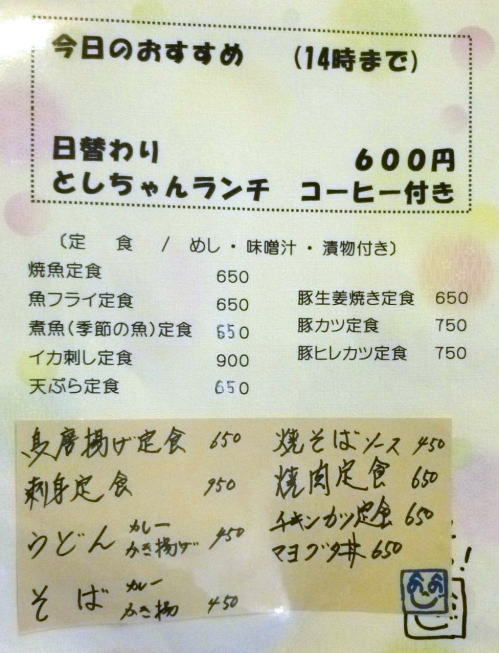 今日のおすすめ （14時まで）
日替わり 600円
としちゃんランチ コーヒー付き
（定 食 / めし・味噌汁・漬物付き）
焼魚定食 650
魚フライ定食 650
煮魚（季節の魚）定食 650
イカ刺し定食 900
天ぷら定食 650
豚生姜焼き定食 650
豚カツ定食 750
豚ヒレカツ定食 750
唐揚げ定食 650
刺身定食 950
うどん カレー かき揚げ 450
そば カレー かき揚 450
焼そばソース 450
焼肉定食 650
チキンカツ定食 650
マヨブタ丼 650